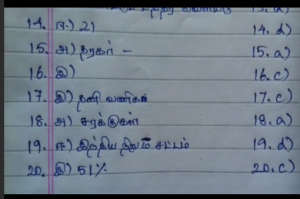 14. ஈ) 21 14. d)
15. அ) நரகர் - 15. a)
16. இ) 16. c)
17. இ) தனி வணிகன் 17. c)
18. அ) சரக்குகள் 18. a)
19. ஈ) இந்திய நிறும சட்டம் 19. d)
20. இ) 51% 20. c)